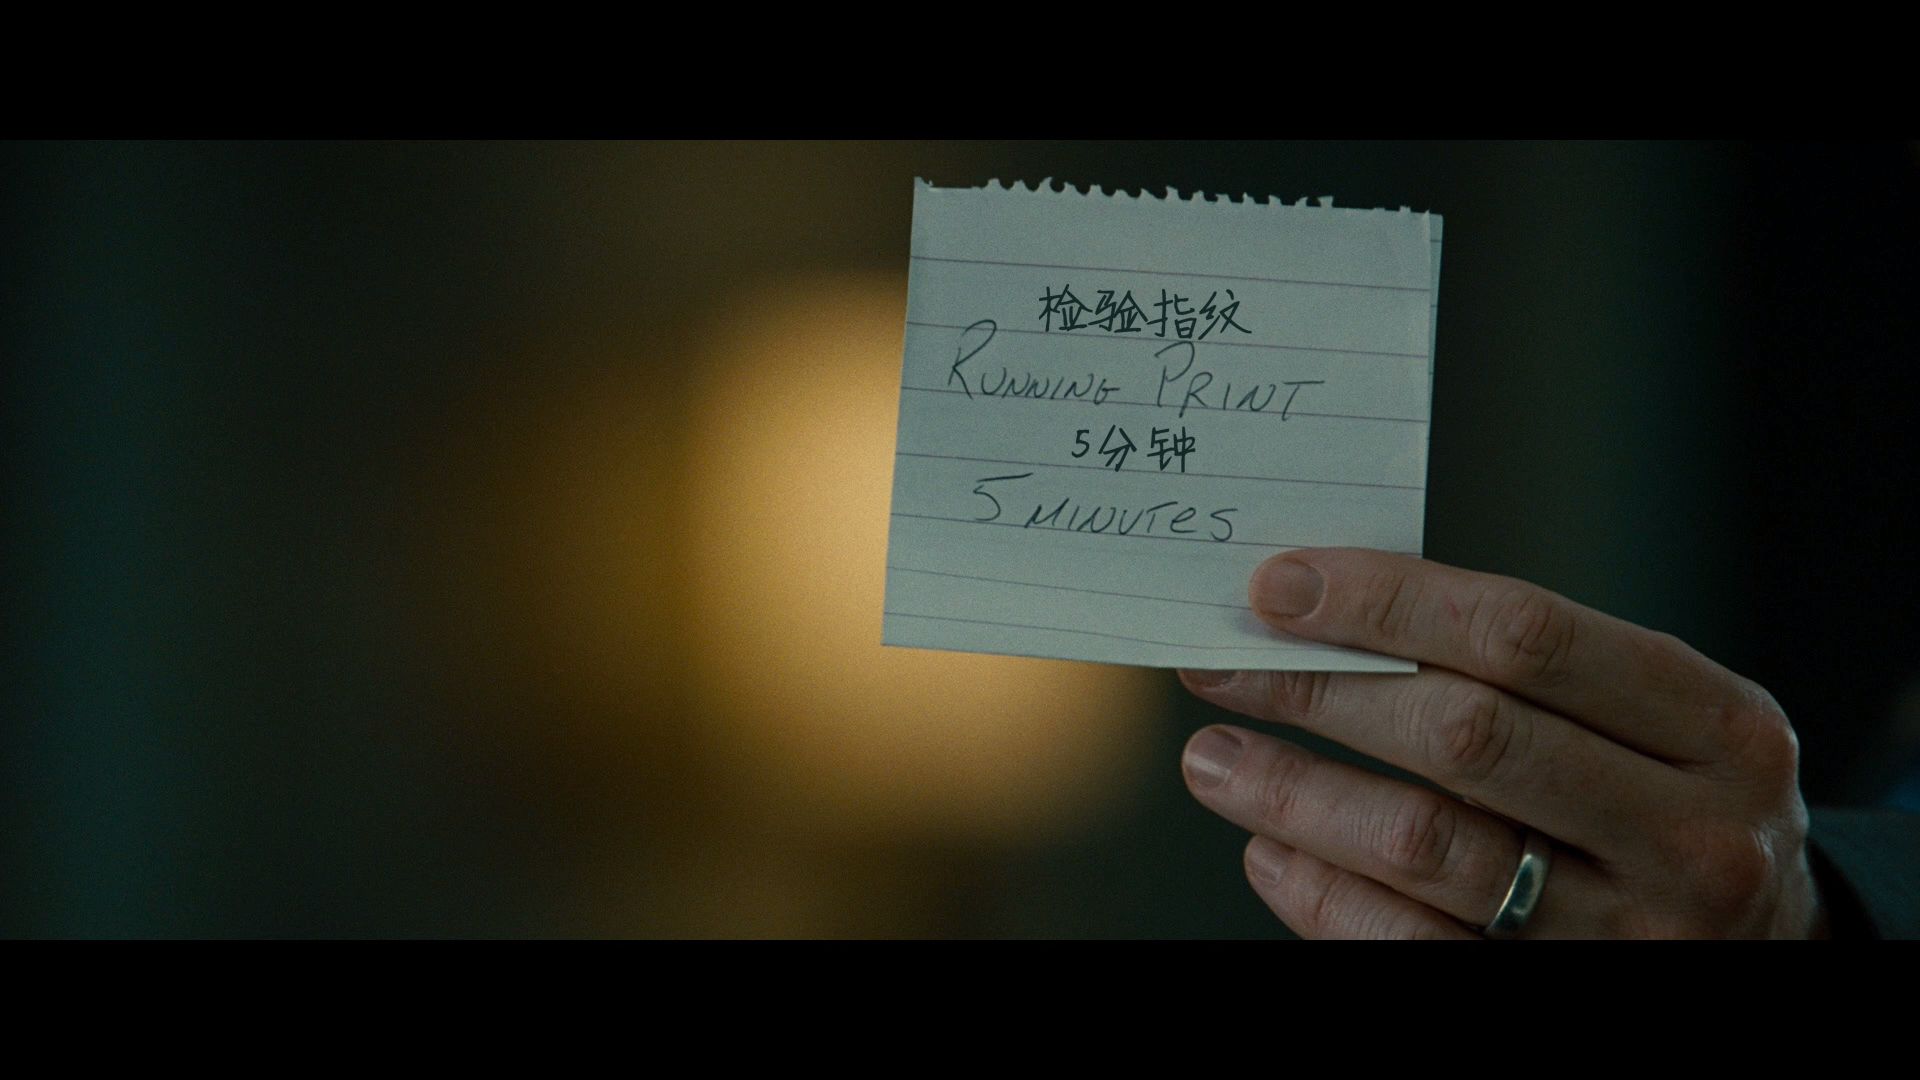 检验指纹
RUNNING PRINT
5分钟
5 MINUTES